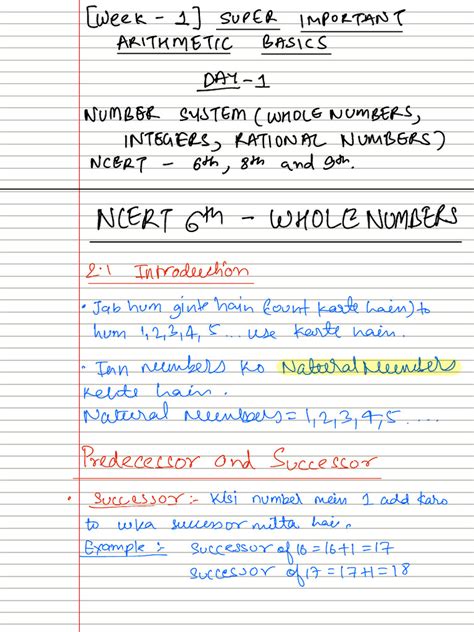 [Week - 1] SUPER IMPORTANT
ARITHMETIC BASICS
DAY - 1
NUMBER SYSTEM (WHOLE NUMBERS,
INTEGERS, RATIONAL NUMBERS)
NCERT - 6th, 8th and 9th.
NCERT 6th - WHOLE NUMBERS
2.1 Introduction
• Jab hum ginte hain (count karte hain) to
hum 1, 2, 3, 4, 5 ... use karte hain.
• Inn numbers ko Natural Numbers
kehte hain.
Natural Numbers = 1, 2, 3, 4, 5 .....
Predecessor and Successor
• Successor :- Kisi number mein 1 add karo
to uska successor milta hai.
Example :- Successor of 16 = 16+1 = 17
Successor of 17 = 17+1 = 18